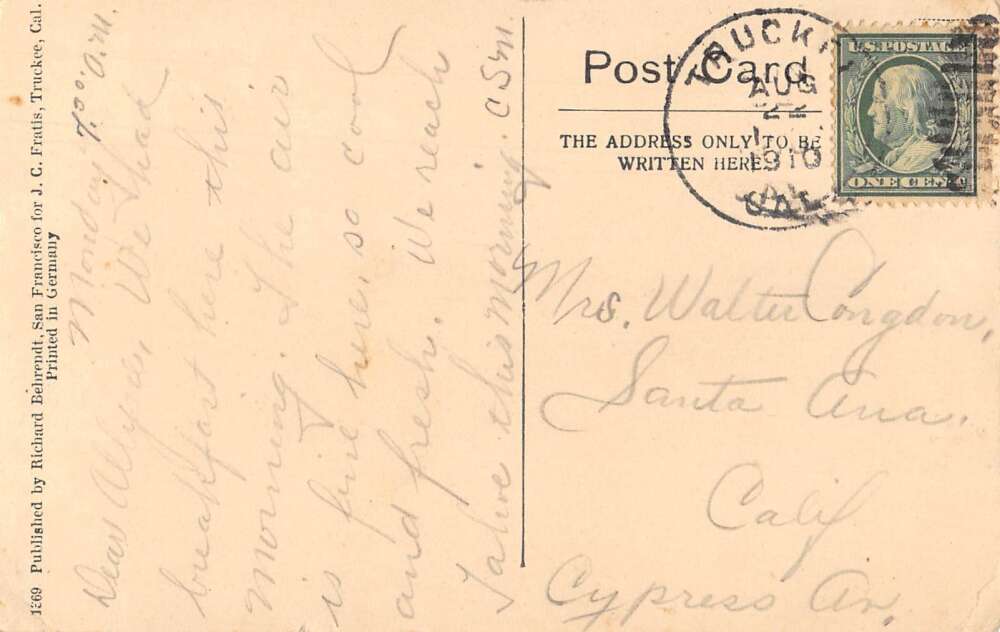 1369 Published by Richard Behrendt, San Francisco for J. C. Fratis, Truckee, Cal.
Printed in Germany
Monday 7.00 a.m.
Dear We had
breakfast here this
morning. The air
is fine here, so cool
and fresh. We reach
Tahoe this morning. C S M
Post Card
THE ADDRESS ONLY TO BE
WRITTEN HERE
TRUCKEE
AUG
22
1910
CAL.
U.S. POSTAGE
ONE CENT
Mrs. Walter Congdon,
Santa Ana.
Calif
Cypress Av.